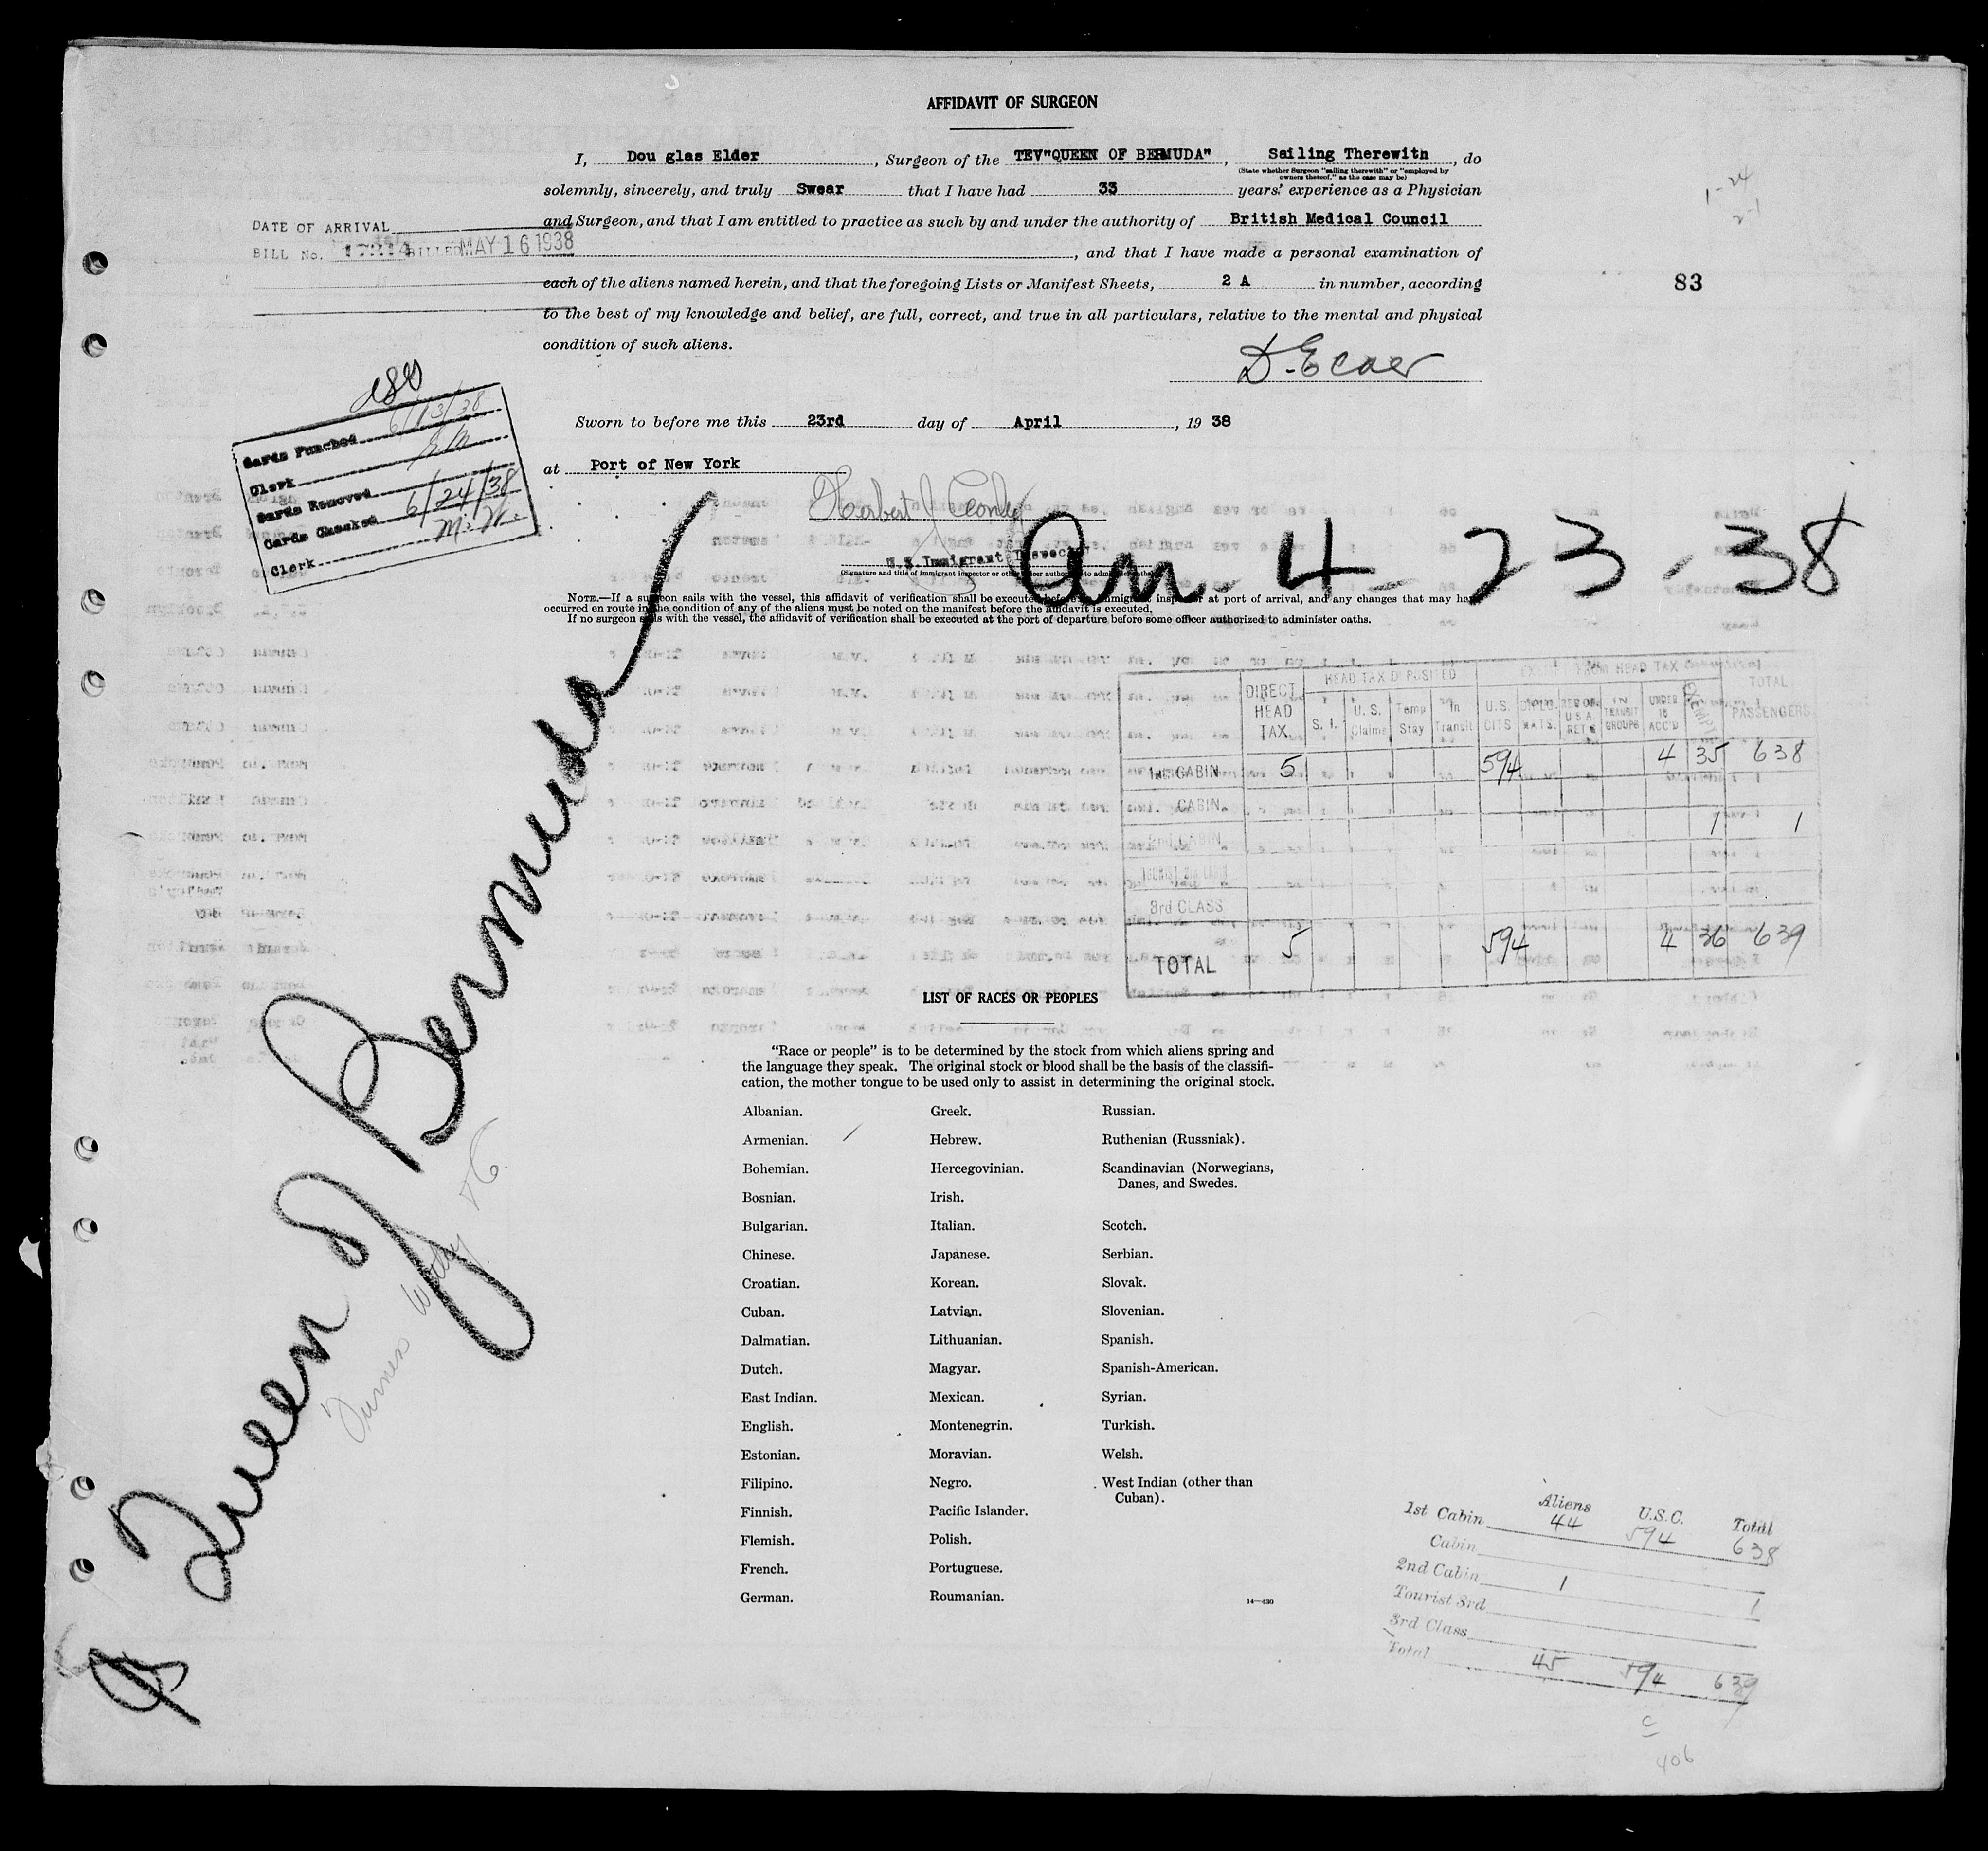 AFFIDAVIT OF SURGEON
I, Dou glas Elder, Surgeon of the TEV"QUEEN OF BERMUDA", Sailing Therewith, do
(State whether Surgeon "sailing therewith" or "employed by
owners thereof," as the case may be)
solemnly, sincerely, and truly Swear that I have had 33 years' experience as a Physician
and Surgeon, and that I am entitled to practice as such by and under the authority of British Medical Council
, and that I have made a personal examination of
each of the aliens named herein, and that the foregoing Lists or Manifest Sheets, 2 A in number, according
to the best of my knowledge and belief, are full, correct, and true in all particulars, relative to the mental and physical
condition of such aliens.
D. Elder
DATE OF ARRIVAL
BILL No. BILLED MAY 16 1938
1-24
2-1
83
Sworn to before me this 23rd day of April, 19 38
at Port of New York
Herbert J
U.S. Immigrant Inspector
(Signature and title of immigrant inspector or other officer authorized to administer oaths)
Cards Punched 6/13/38
Clerk
Cards Removed
Cards Checked 6/24/38
Clerk M. W.
Arr - 4 - 23 - 38
NOTE.—If a surgeon sails with the vessel, this affidavit of verification shall be executed before an immigrant inspector at port of arrival, and any changes that may have
occurred en route in the condition of any of the aliens must be noted on the manifest before the affidavit is executed.
If no surgeon sails with the vessel, the affidavit of verification shall be executed at the port of departure before some officer authorized to administer oaths.
Queen of Bermuda
Turner Wilby
HEAD TAX DEPOSITED EXEMPT FROM HEAD TAX TOTAL
DIRECT HEAD TAX S. I. U.S. Claims Temp Stay In Transit U.S. CITS DIPLO. MATS. RES OF U S A RET'G IN TRANSIT GROUPS UNDER 16 ACC'D EXEMPTS PASSENGERS
1st CABIN 5 594 4 35 638
CABIN
2nd CABIN 1 1
TOURIST 3rd CABIN
3rd CLASS
TOTAL 5 594 4 36 639
LIST OF RACES OR PEOPLES
"Race or people" is to be determined by the stock from which aliens spring and
the language they speak. The original stock or blood shall be the basis of the classifi-
cation, the mother tongue to be used only to assist in determining the original stock.
Albanian.
Armenian.
Bohemian.
Bosnian.
Bulgarian.
Chinese.
Croatian.
Cuban.
Dalmatian.
Dutch.
East Indian.
English.
Estonian.
Filipino.
Finnish.
Flemish.
French.
German.
Greek.
Hebrew.
Hercegovinian.
Irish.
Italian.
Japanese.
Korean.
Latvian.
Lithuanian.
Magyar.
Mexican.
Montenegrin.
Moravian.
Negro.
Pacific Islander.
Polish.
Portuguese.
Roumanian.
Russian.
Ruthenian (Russniak).
Scandinavian (Norwegians,
Danes, and Swedes.
Scotch.
Serbian.
Slovak.
Slovenian.
Spanish.
Spanish-American.
Syrian.
Turkish.
Welsh.
West Indian (other than
Cuban).
14—430
Aliens U.S.C. Total
1st Cabin 44 594 638
Cabin
2nd Cabin 1 1
Tourist 3rd
3rd Class
Total 45 594 639
c
406